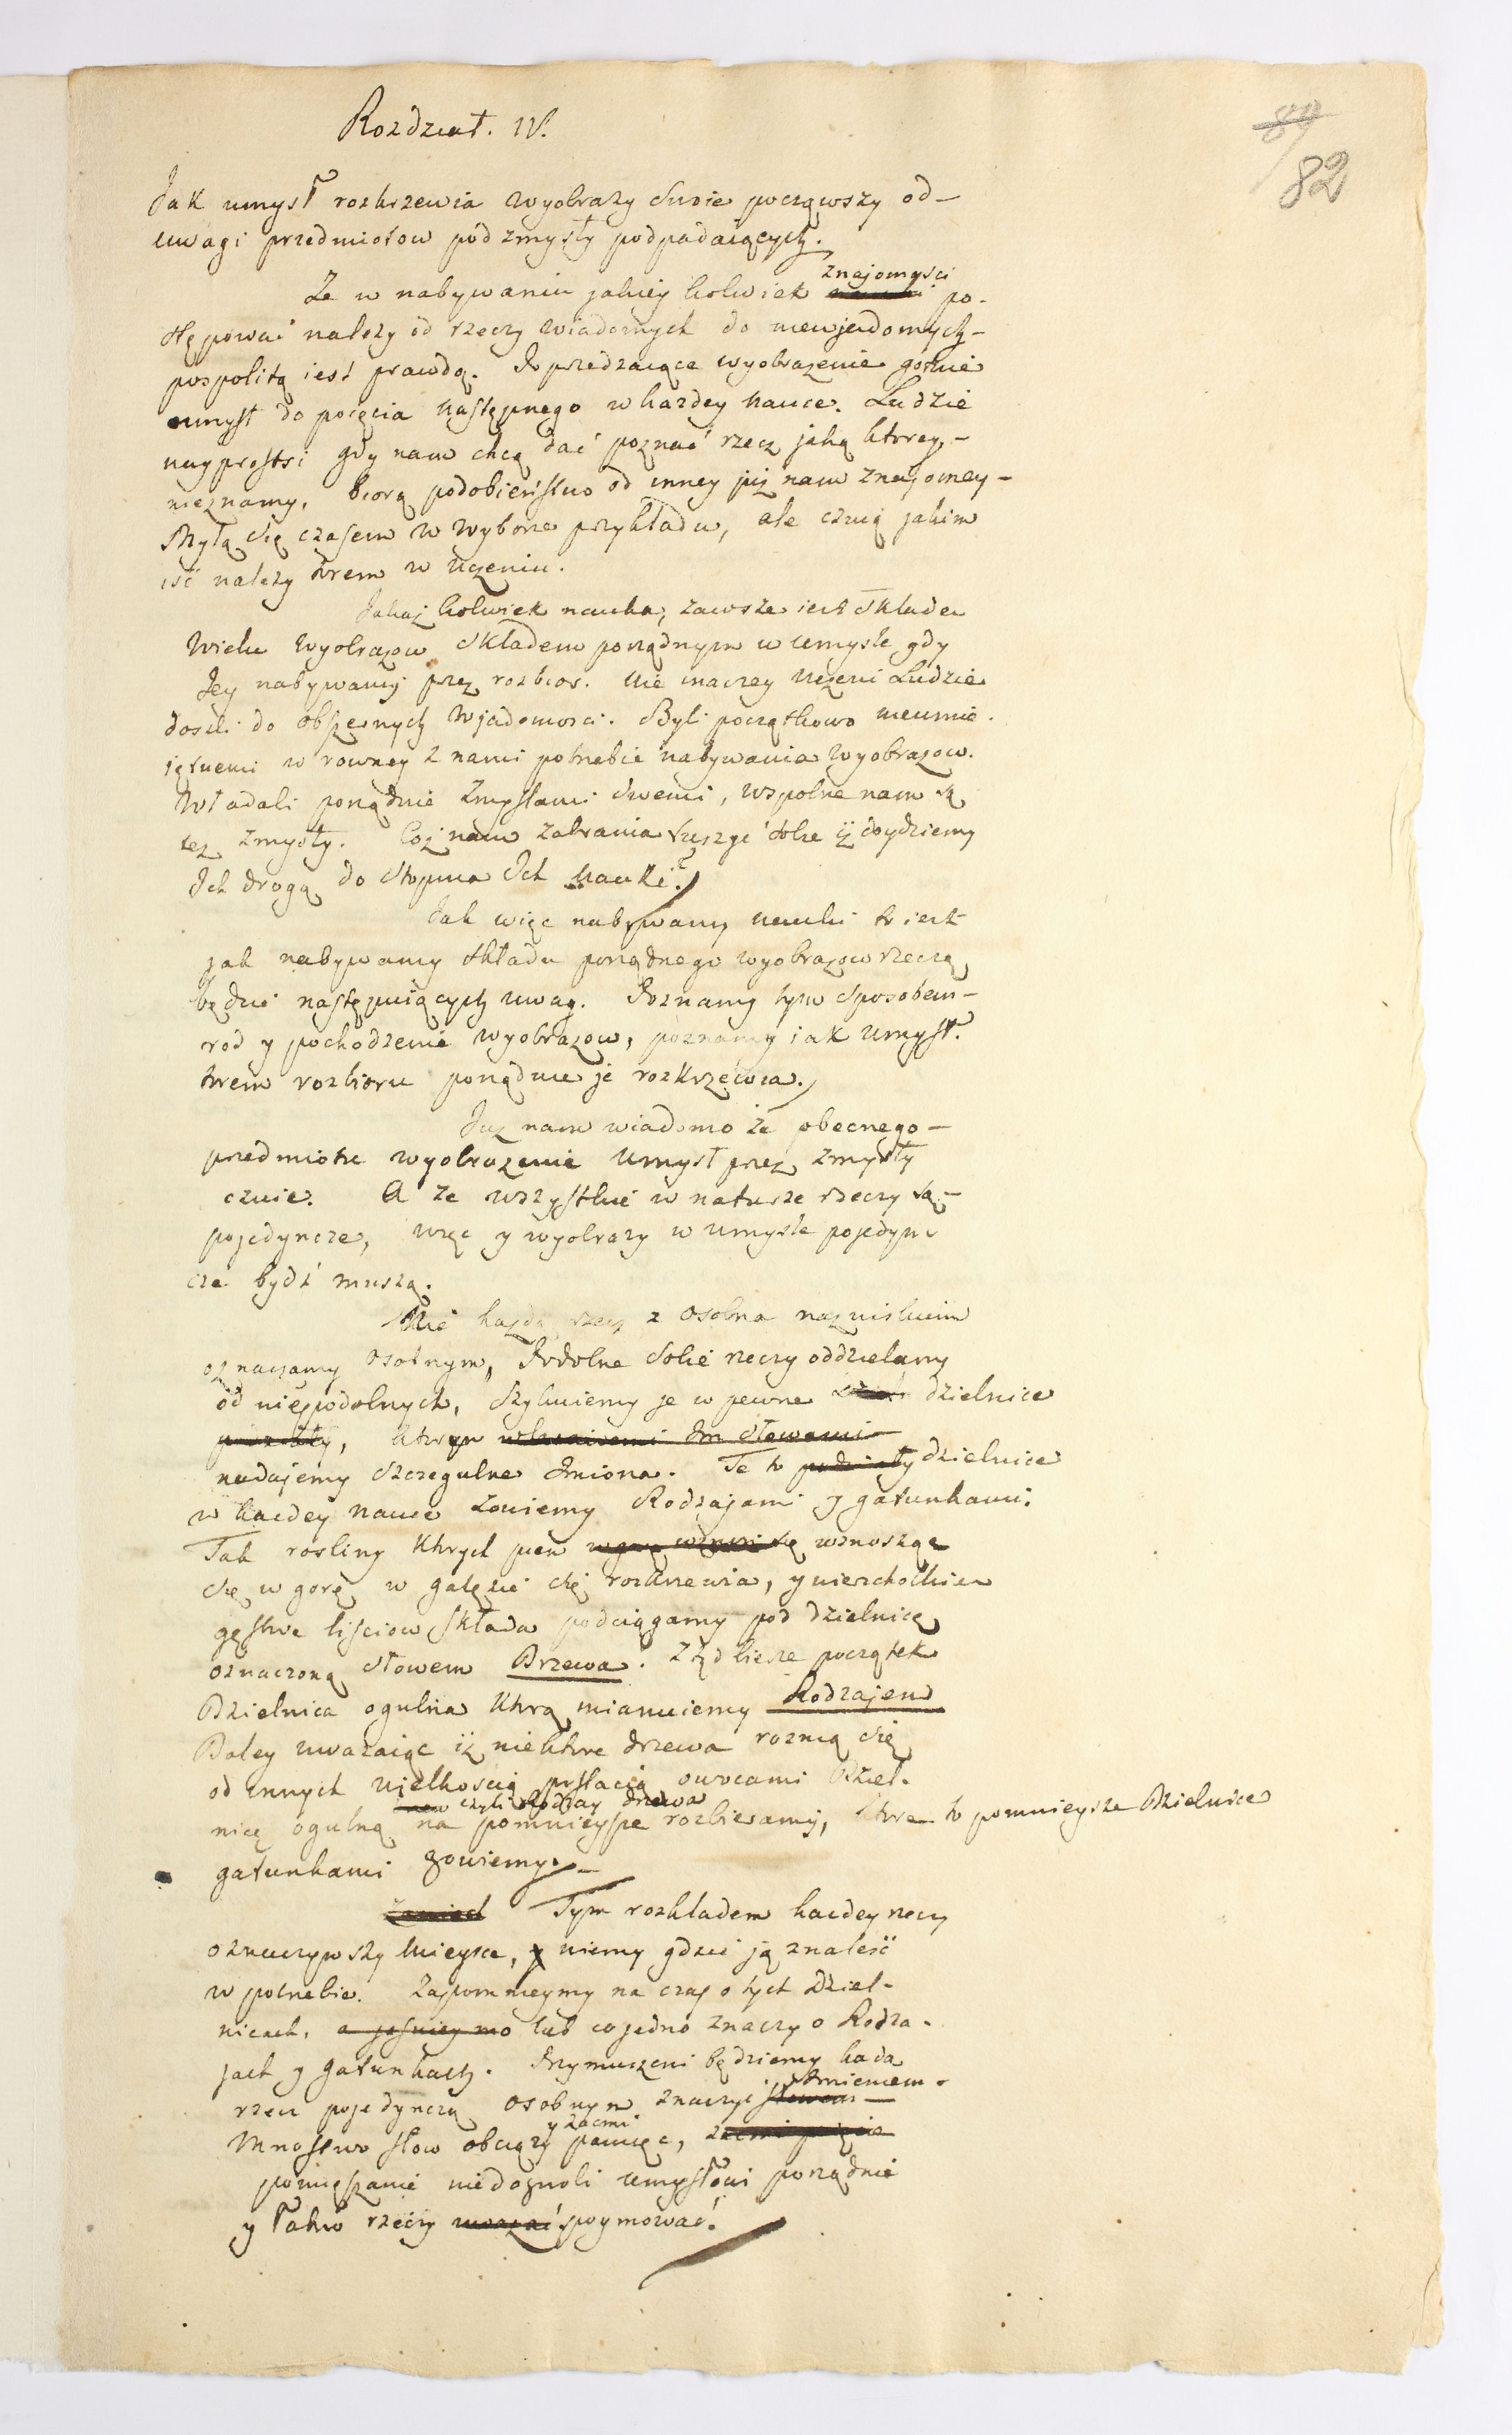 Rozdział. IV.
82
Jak umysł rozkrzewia wyobrazy swoie począwszy od-
uwagi przedmiotow pod zmysły podpadaiących.
znajomości
Ze w nabywaniu jakiey kolwiek po-
stępować należy od rzeczy wiadomych do niewjadomych-
pospolitą iest prawdą. Poprzedzaiące wyobrażenie gotuie
umysł do poięcia następnego w każdey nauce. Ludzie
nayprostsi gdy nam chcą dać poznać rzecz jaką ktorey-
nieznamy, biorą podobieństwo od inney już nam znajomey-
Mylą się czasem w wyborze przykładu, ale czuią jakim
iść należy trem w uczeniu.
Jakaż kolwiek nauka, zawsze iest składem
wielu wyobrazow składem porządnym w umyśle gdy
Jey nabywamy przez rozbior. Nie inaczey uczeni Ludzie
doszli do obszernych wjadomosci. Byli początkowo nieumie-
jętnemi w rowney z nami potrzebie nabywania wyobrazow.
Władali porządnie zmysłami swemi, wspolne nam są
też zmysły. Coż nam zabrania tuszyć sobie iż doydziemy
Ich drogą do stopnia Ich nauki?
Jak więc nabywamy nauki to iest
jak nabywamy składu porządnego wyobrazow rzeczą
będzie następuiących uwag. Poznamy tym sposobem-
rod y pochodzenie wyobrazow, poznamy iak umysł
trem rozbioru porządnie je rozkrzewia.
Już nam wiadomo że obecnego-
przedmiotu wyobrażenie umysł przez zmysły
czuie. A że wszystkie w naturze rzeczy są-
pojedyncze, więc y wyobrazy w umyśle pojedyn
cze bydź muszą.
Nie każdą rzecz z osobna nazwiskiem
oznaczamy osobnym, Podobne sobie rzeczy oddzielamy
od niepodobnych, szykuiemy je w pewne dzielnice
podziały, ktorym własciwemi im słowami
nadajemy szczegulne Imiona. Te to podziały dzielnice
w każdey nauce zowiemy Rodzajami y gatunkami.
Tak rosliny ktrych pien wznosząc
się w gorę w gałęzie się rozkrzewia, y wierzchołkiem
gęstwę liściow składa podciągamy pod dzielnicę
oznaczoną słowem Drzewa. Ztąd bierze początek
Dzielnica ogulna ktrą mianuiemy Rodzajem
Daley uważaiąc iż niektre drzewa roznią się
od innych wielkością postacią owocami Dziel-
czyli Rodzay drzewa
nicę ogulną na pomnieysze rozbieramy, ktre to pomnieysze Dzielnice
gatunkami zowiemy.
Tym rozkładem każdey rzeczy
oznaczywszy mieysce, y wiemy gdzie ją znaleść
w potrzebie. Zapomnieymy na czas o tych Dziel-
nicach, a jaśniey mo lub co jedno znaczy o Rodza-
jach y gatunkach. Przymuszeni będziemy każdą
Imieniem-
rzecz pojedynczą osobnym znaczyć słowem
y zacmi
Mnostwo słow obciąży pamięc,
pomięszanie niedozwoli umysłowi porządnie
y łatwo rzeczy poymować.